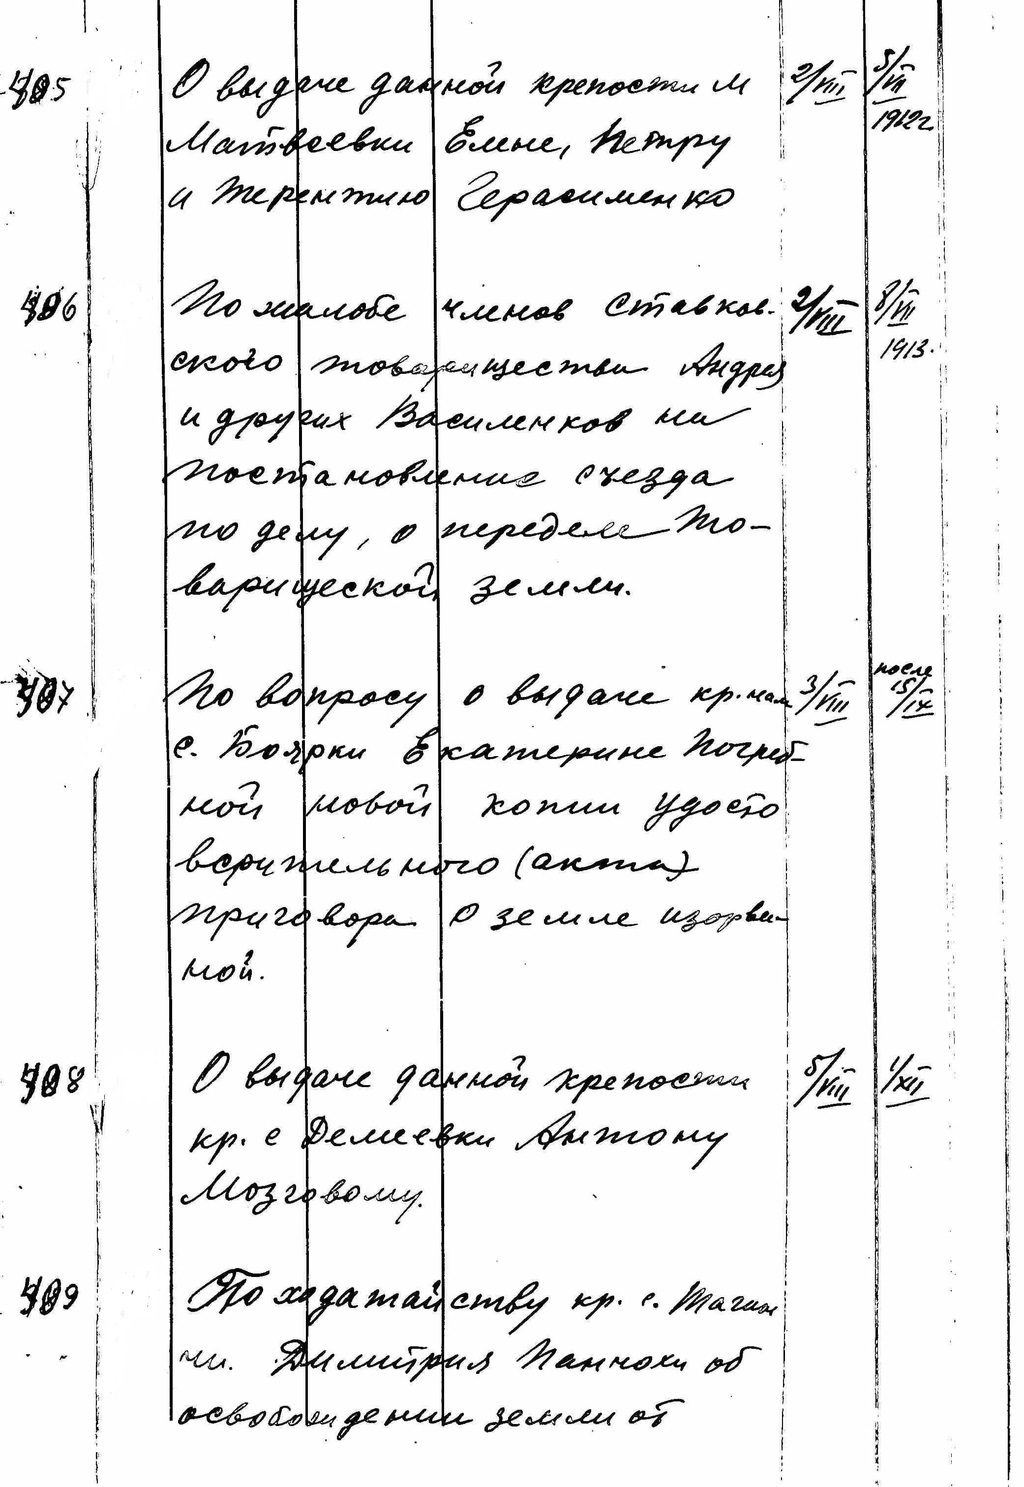 405 О выдаче данной крепости м 2/VIII 5/VII 1912г.
Матвеевки Елене, Петру
и Терентию Герасименко
406 По жалобе членов Ставков- 2/VIII 8/VII 1913.
ского товарищества Андрея
и других Василенков на
постановление съезда
по делу, о переделе То-
варищеской земли.
407 По вопросу о выдаче кр. 3/VIII после 15/IX
с. Боярки Екатерине Погреб-
ной новой копии удосто
верительного (акта)
приговора о земле изорван-
ной.
408 О выдаче данной крепости 5/VIII 1/XII
кр. с Демеевки Антону
Мозговому.
409 По ходатайству кр. с.
Димитрия об
освобождении земли от